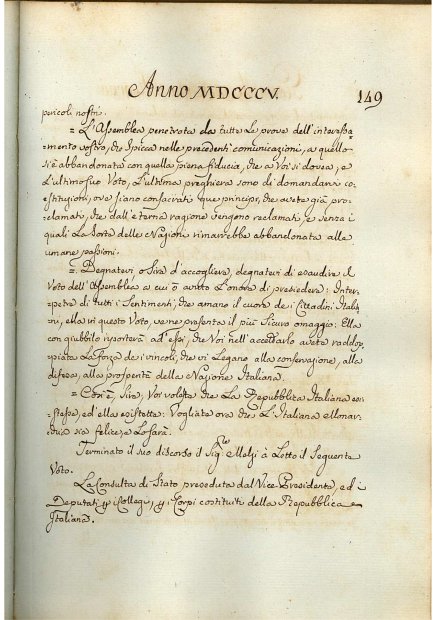 Anno MDCCCV.
149
pericoli nostri.
= L'Assemblea penetrata da tutte le prove dell'interessa=
=mento vostro, che spicca nelle precedenti comunicazioni, a quello
si è abbandonata con quella piena fiducia, che a Voi si dovea, e
L'ultimo suo Voto, L'ultima preghiera sono di domandarvi co=
=stituzioni, ove siano consacrati que' principj, che avete già pro=
=clamati, che dall'eterna ragione vengono reclamati, e senza i
quali La sorte delle Nazioni rimarrebbe abbandonata alle
umane passioni.
= Degnatevi o Sire d'accogliere, degnatevi di esaudire il
Voto dell'Assemblea a cui ò avuto L'onore di presiedere: Inter=
=petre di tutti i Sentimenti, che amano il cuore de' Cittadini Italia=
=ni, ella in questo Voto, ve ne presenta il più Sicuro omaggio: Ella
con giubbilo riporterà ad essi, che Voi nell'accettarlo avete raddop=
=piata La forza dei vincoli, che vi Legano alla conservazione, alla
difesa, alla prosperità della Nazione Italiana.
= Ebbene, Sire, Voi voleste che La Repubblica Italiana esi=
=stesse, ed ella esistette: Vogliate ora che L'Italiana Monar=
chia sia felice, e Lo sarà.
Terminato il suo discorso il Sig.re Melzi à Letto il Seguente
Voto.
La Consulta di Stato preceduta dal Vice-Presidente, ed i
Deputati pei Collegi, e Corpi costituiti della Repubblica
Italiana.